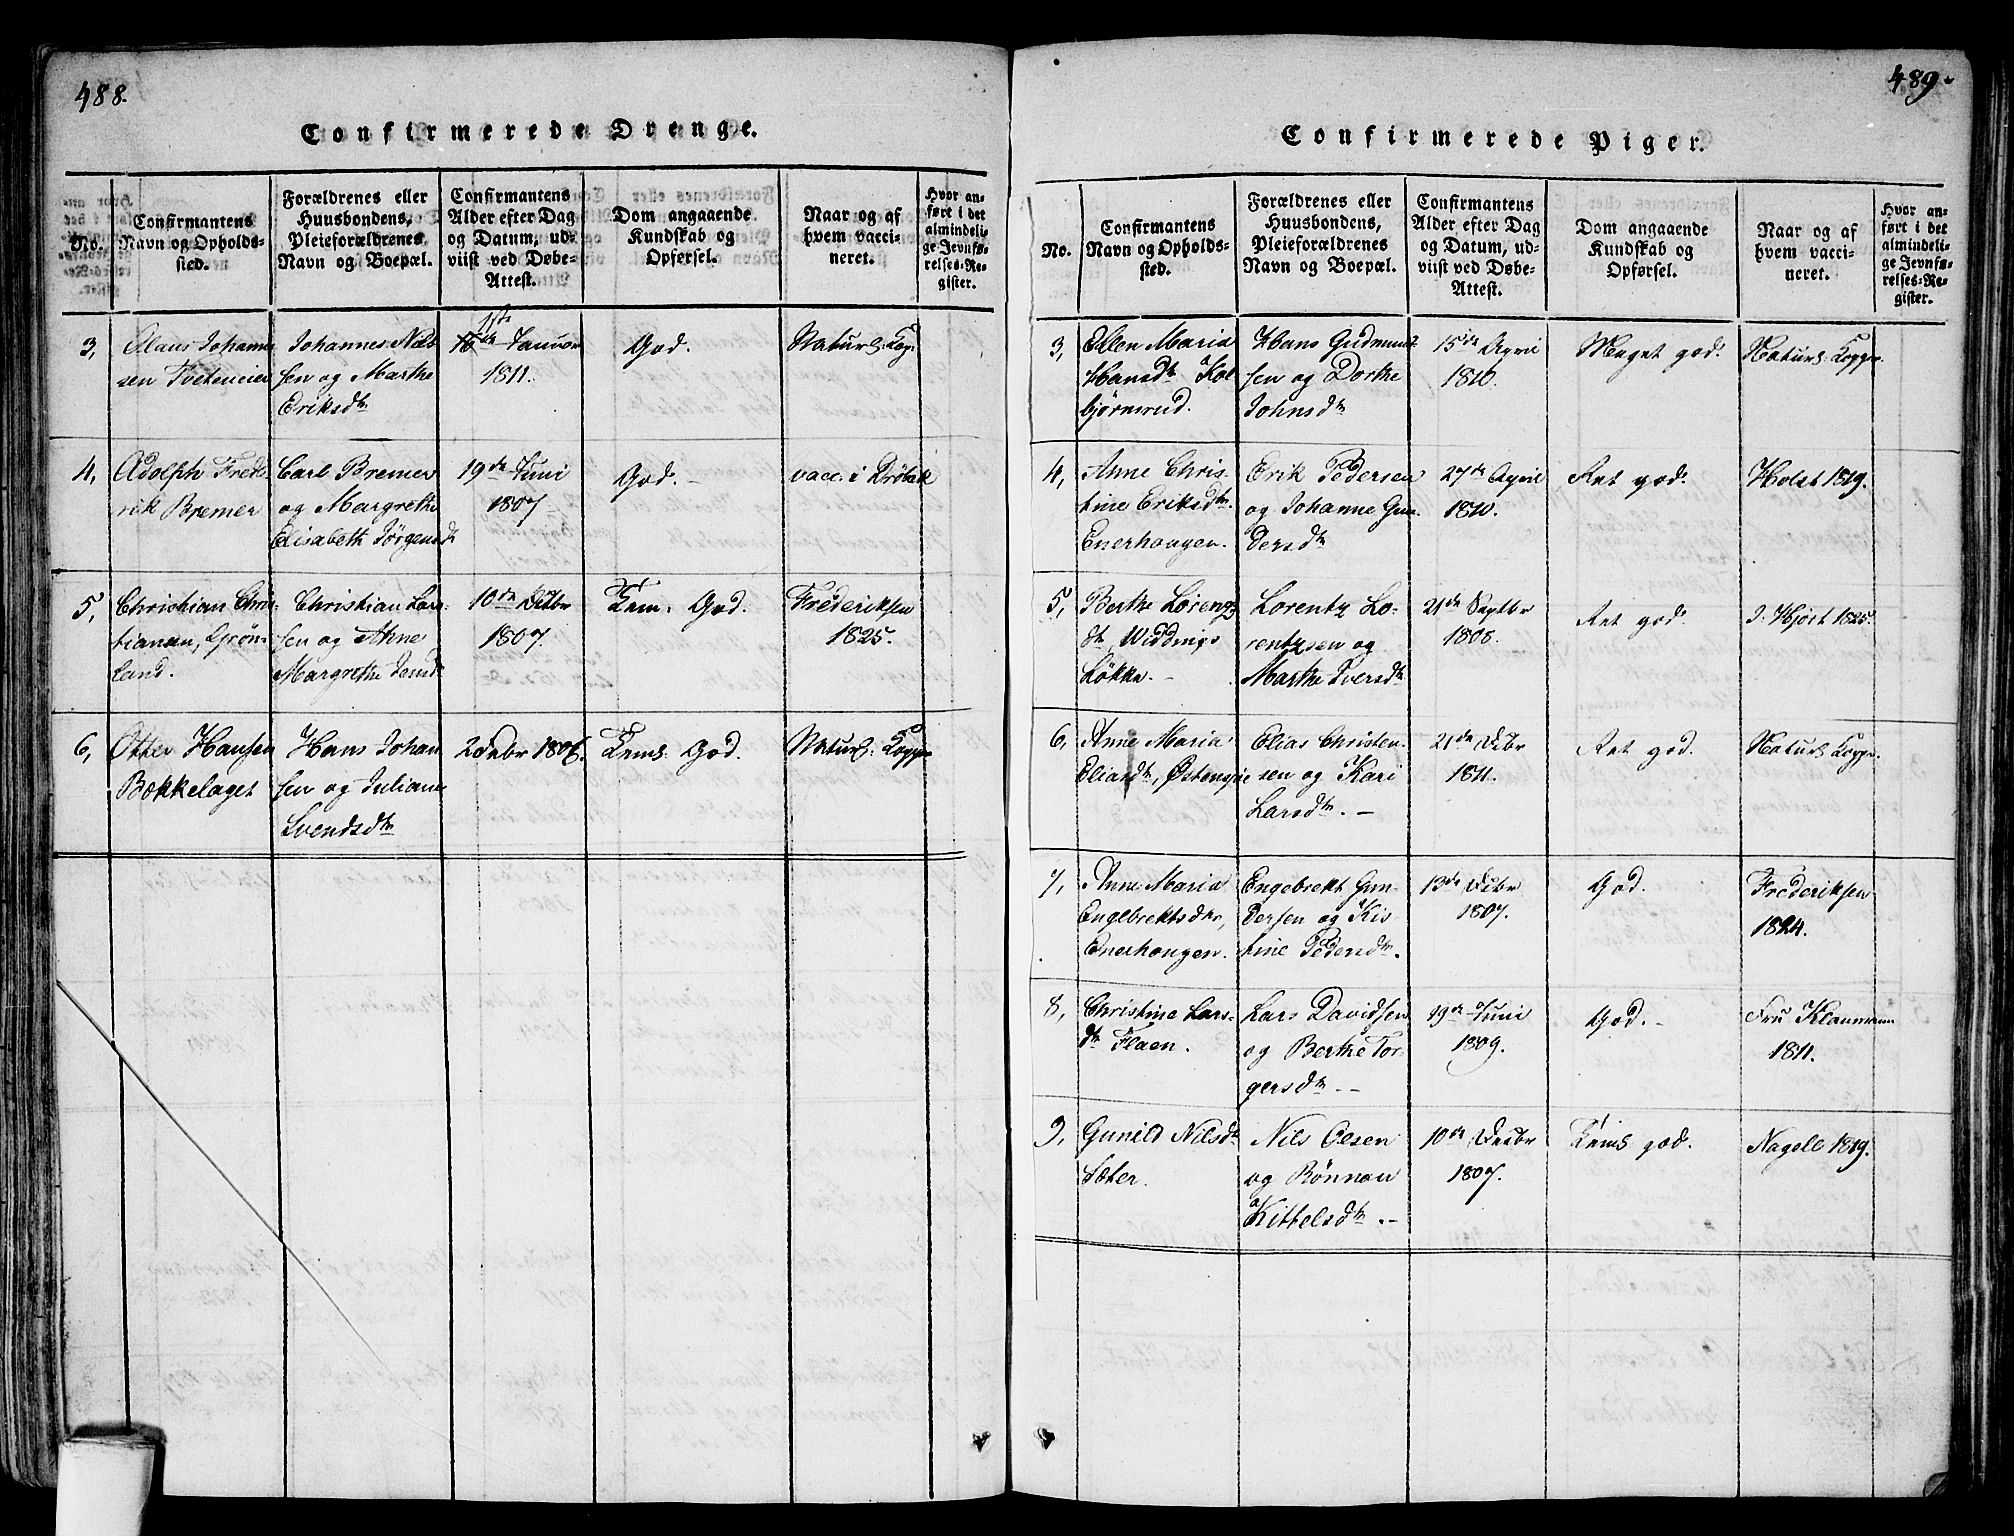 488.
Confirmerede Drenge.
No.
Confirmantens
Navn og Opholds-
sted.
Forældrenes eller
Huusbondens,
Pleieforældrenes
Navn og Boepæl.
Confirmantens
Alder efter Dag
og Datum, ud-
viist ved Døbe-
Attest.
Dom angaaende
Kundskab og
Opførsel.
Naar og af
hvem vacci-
neret.
Hvor an-
ført i det
almindeli-
ge Jevnfø-
relses-Re-
gister.
3,
Olaus Johannes
sen Tveteneier
Johannes Nils
sen og Marthe
Eriksdtr
1ste
Januar
1811.
God.
Naturl. Kop.
4,
Adolph Frede
rik Bremer
Carl Bremer
og Margrethe
Elisabeth Jörgensdt
19de Juni
1807
God. –
vacc. i Dröbak
5,
Christian Chris-
tiansen, Grön-
land.
Christian Lar-
sen og Anne
Margrethe
10de Decbr
1807.
Tem. God.
Frederiksen
1825.
6,
Otter Hansen
Bækkelaget
Hans Johan
sen og Juliane
Svendsdtr
2 Decbr 1806.
Tems. God.
Naturl. Kopp.
489.
Confirmerede Piger.
No.
Confirmantens
Navn og Opholds-
sted.
Forældrenes eller
Huusbondens,
Pleieforældrenes
Navn og Boepæl.
Confirmantens
Alder efter Dag
og Datum, ud-
viist ved Døbe-
Attest.
Dom angaaende
Kundskab og
Opførsel.
Naar og af
hvem vacci-
neret.
Hvor an-
ført i det
almindeli-
ge Jevnfø-
relses-Re-
gister.
3,
Ellen Maria
Hansdtr Kol
bjørnsrud.
Hans Gudmund
sen og Dorthe
Johnsdtr
15de April
1810.
Meget god.
Naturl. Kopper.
4,
Anne Chris-
tine Eriksdtr.
Enerhaugen.
Erik Pedersen
og Johanne Gun
dersdtr
27de April
1810.
Ret god.
Holst 1819.
5,
Berthe Lorentz
dtr, Widdings
Løkke. –
Lorentz Lo-
rentzsen og
Marthe Iversdtr
21de Septbr
1808.
Ret god.
J. Hjort 1825.
6,
Anne Maria
Eliasdtr, Østensjøe
Elias Christen-
sen og Kari
Larsdtr. –
21de Decbr
1811.
Ret god.
Naturl. Kopper.
7,
Anne Maria
Engebrektsdtr,
Enerhaugen.
Engebrekt Gun-
dersen og Kis-
tine Pedersdtr.
13de Decbr
1807.
God.
Frederiksen
1824.
8,
Christine Lars-
dtr Flaen.
Lars Davidsen
og Berthe Tor-
gersdtr. –
19de Juni
1809.
God. –
Fru Klaumann
1811.
9,
Gunild Nilsdtr
Sæter.
Nils Olsen
og Rönnau
Kittelsdtr. –
10de Decbr
1807.
Tems god.
Nagell 1819.